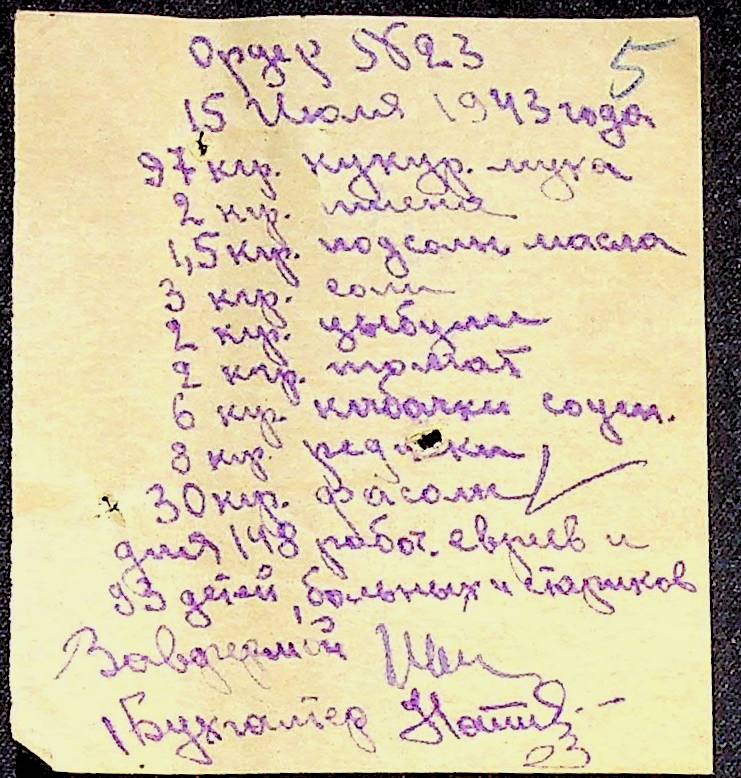 Ордер №23 5
15 Июля 1943 года
97 кгр. кукур. мука
2 кгр. пшена
1,5 кгр. подсолн масла
3 кгр. соли
2 кгр. цыбули
2 кгр. томат
6 кгр. кабачки
8 кгр. редиски
30 кгр. фасоли
для 148 работ. евреев и
93 детей, больных и стариков
Завфермой
Бухгалтер